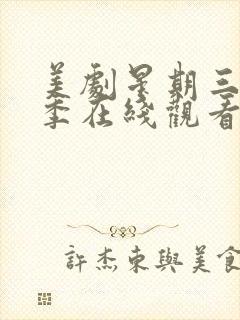 美劇星期三
季在綫觀看
許杰東與美食